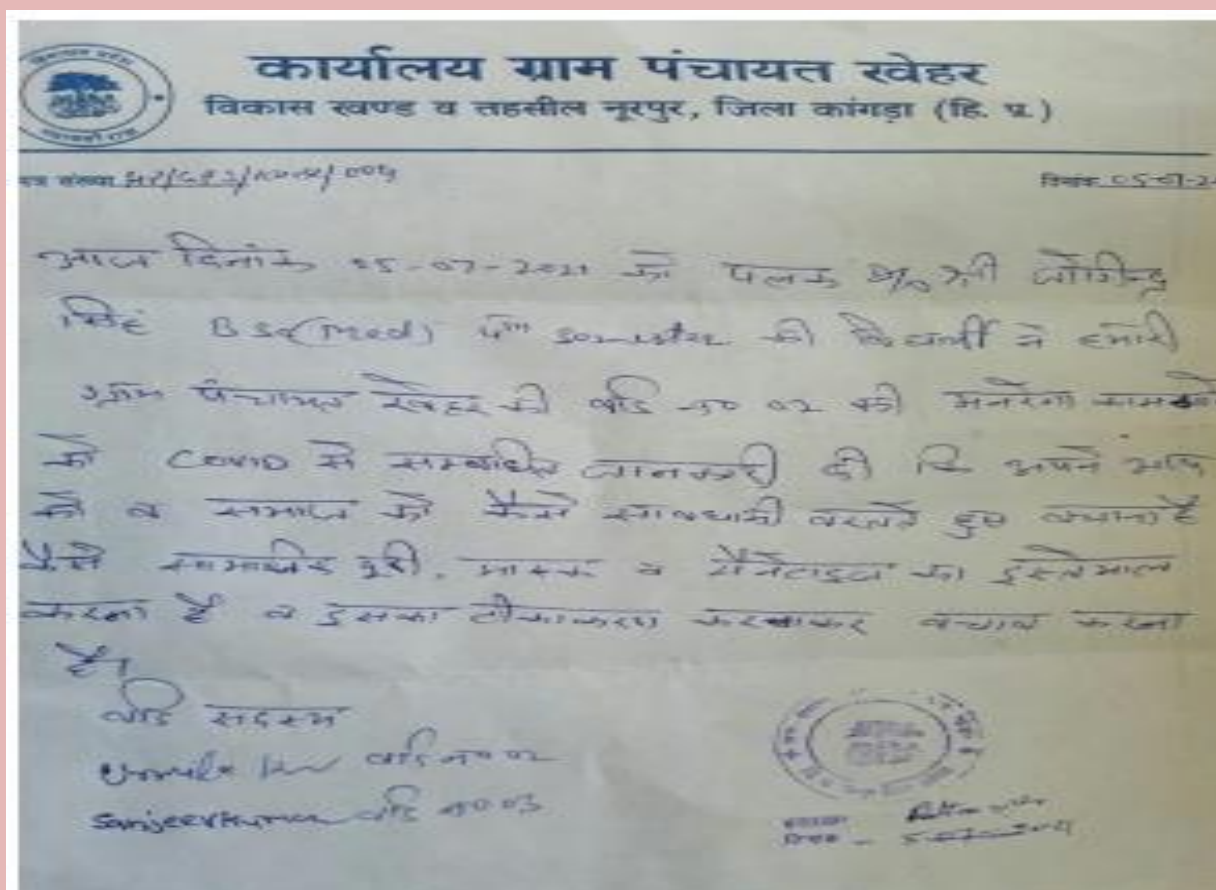 कार्यालय ग्राम पंचायत खेहर
विकास खण्ड व तहसील नूरपुर, जिला कांगड़ा (हि. प्र.)
पत्र संख्या
दिनांक 05-07-2
आज दिनांक 05-07-2021 को पलक D/o श्री जोगिन्द्र
सिंह BSc(Med) 4th semester की विद्यार्थी ने हमारी
ग्राम पंचायत खेहर की वार्ड न० 02 की मनरेगा
को COVID से सम्बंधित जानकारी दी कि अपने
को व समाज को कैसे सावधानी बरतते हुए बचाना है
कैसे सामाजिक दूरी, मास्क व सैनेटाइज का इस्तेमाल
करना है व इसका टीकाकरण करवाकर बचाव करना
है।
वार्ड सदस्य
वार्ड न० 02
Sanjeev Kumar वार्ड न० 03